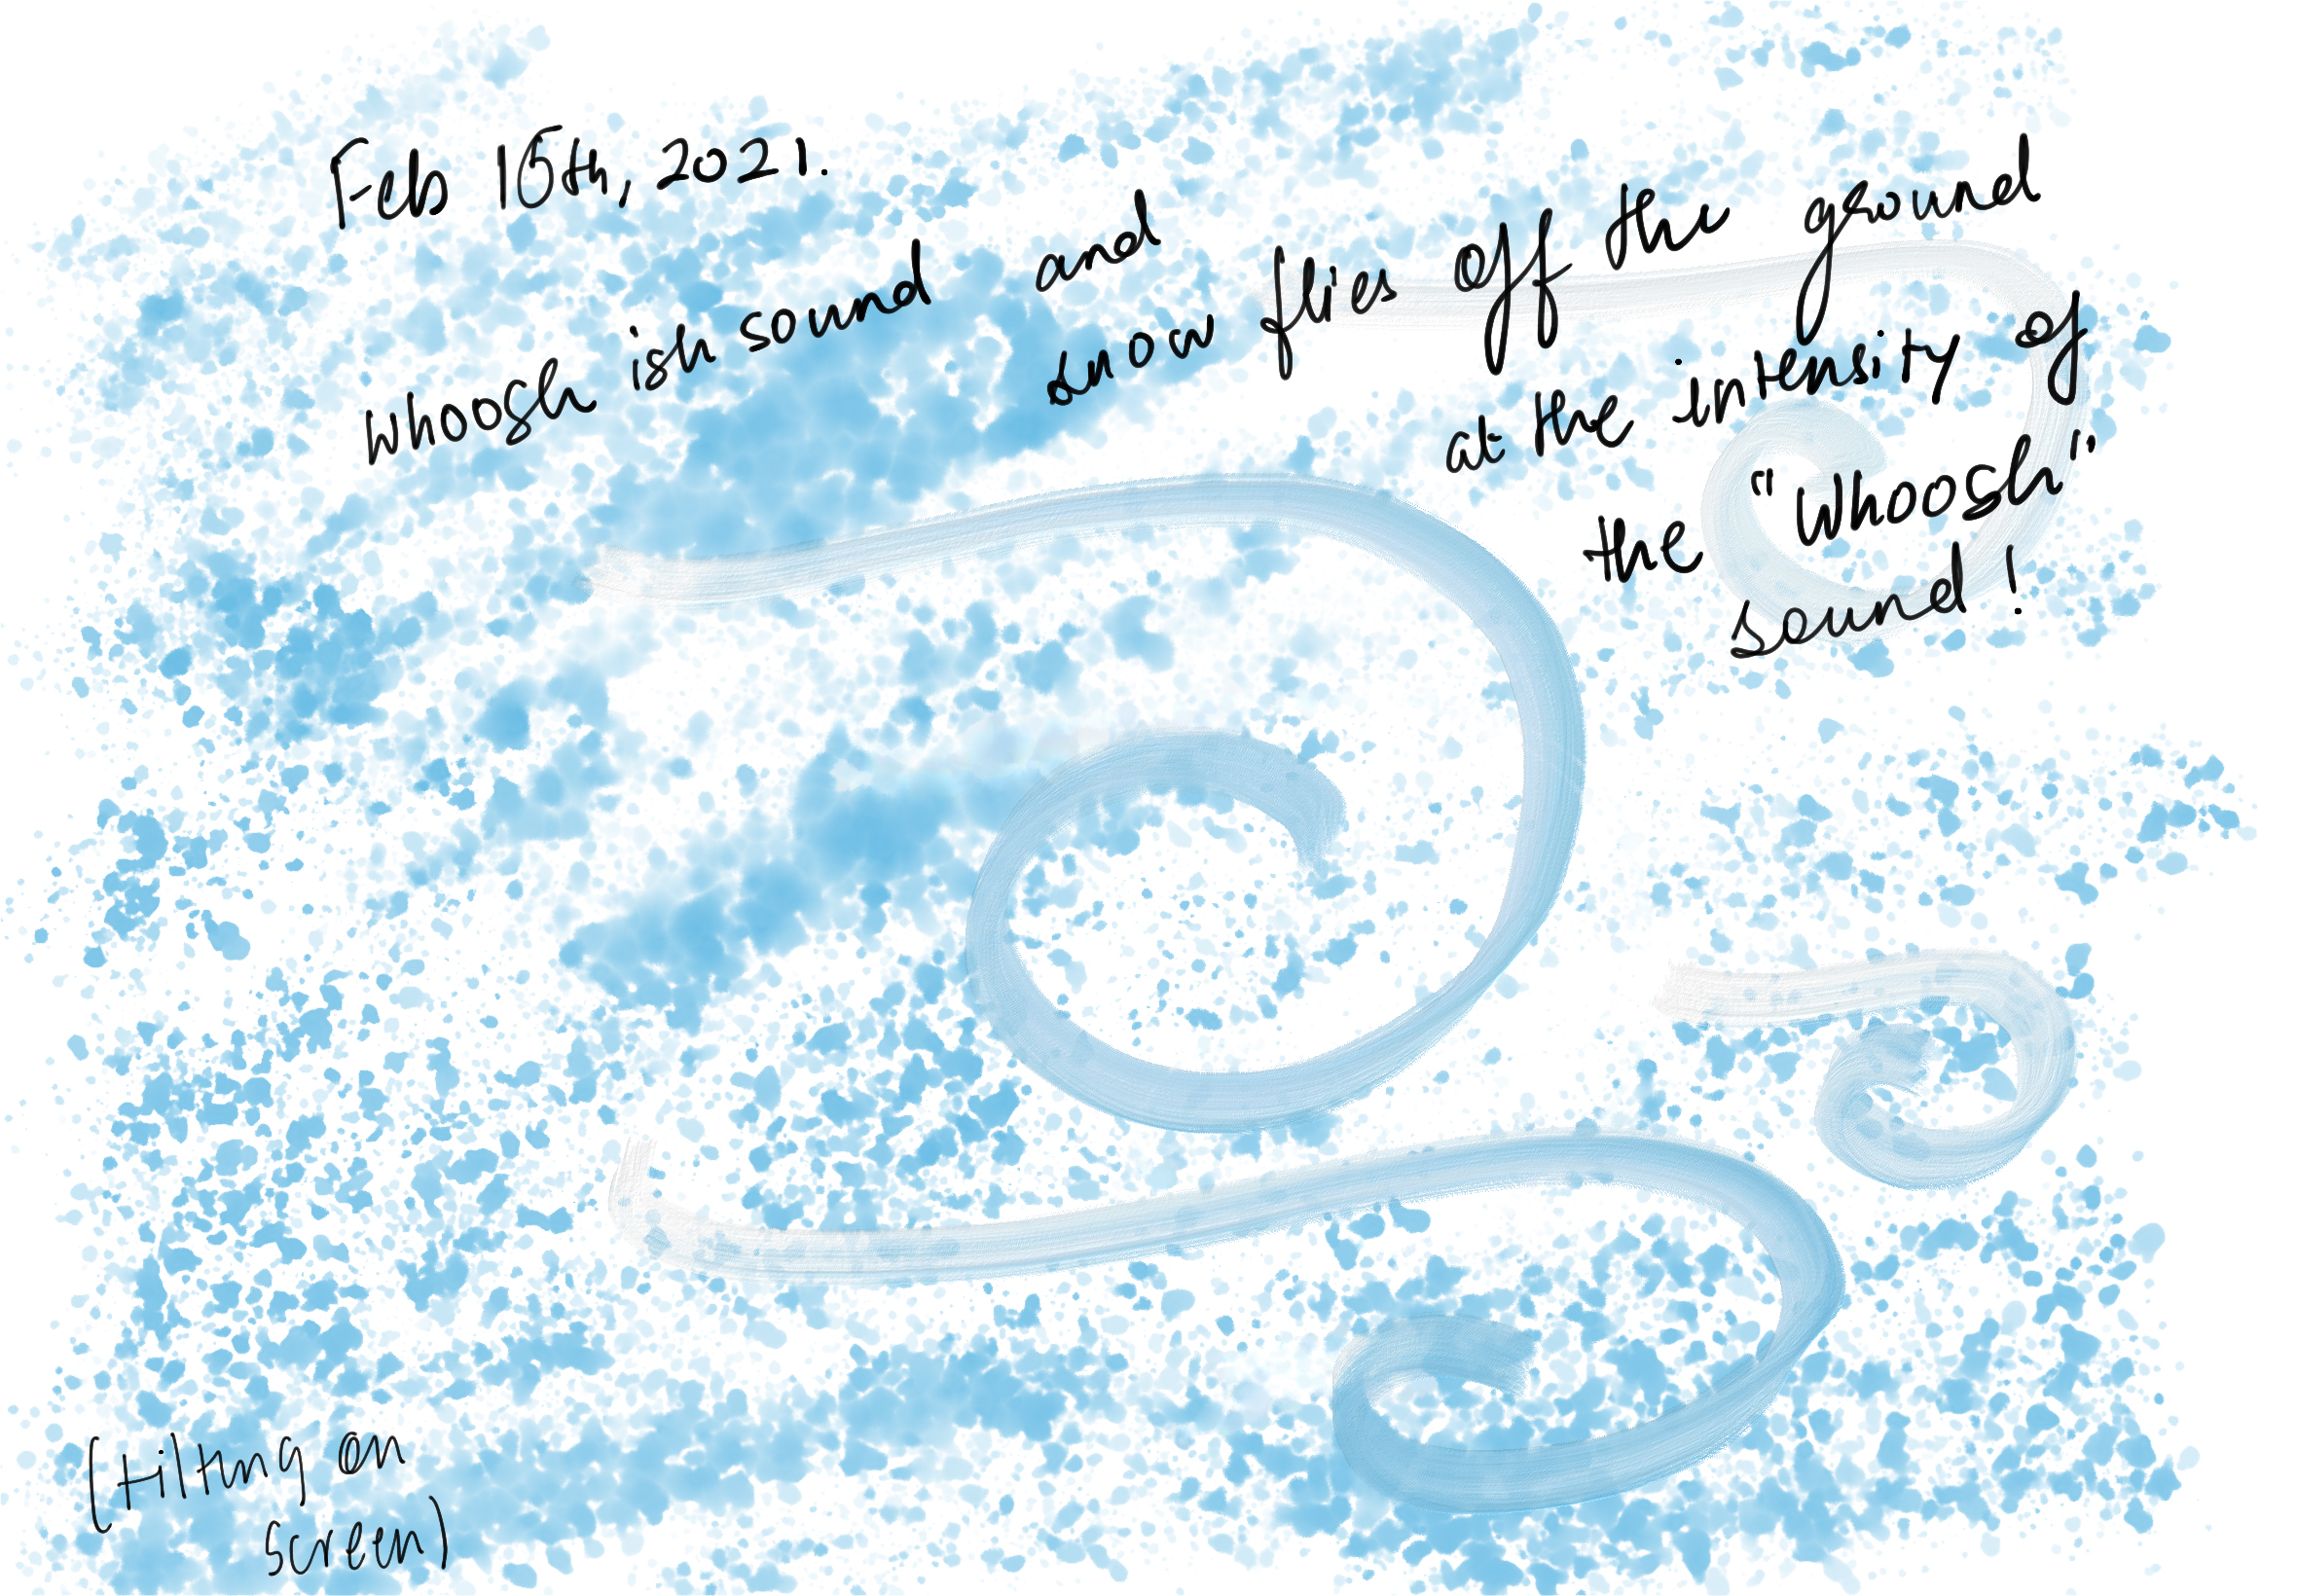 Feb 15th, 2021.
Whoosh ish sound and
snow flies off the ground
at the intensity of
the "Whoosh"
sound!
(tilting on
screen)